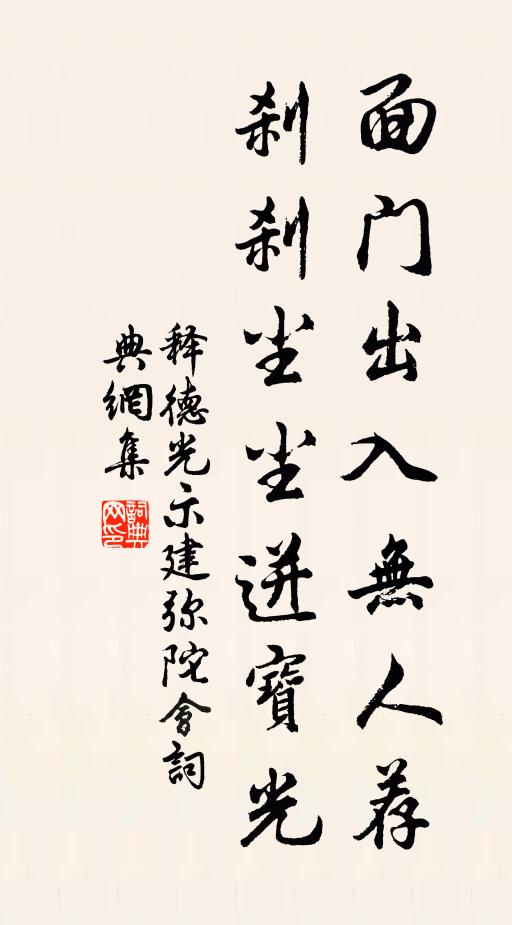 面门出入無人荐
刹刹尘尘迸寶光
释德光示建弥陀會詞
典網集
詞典网印